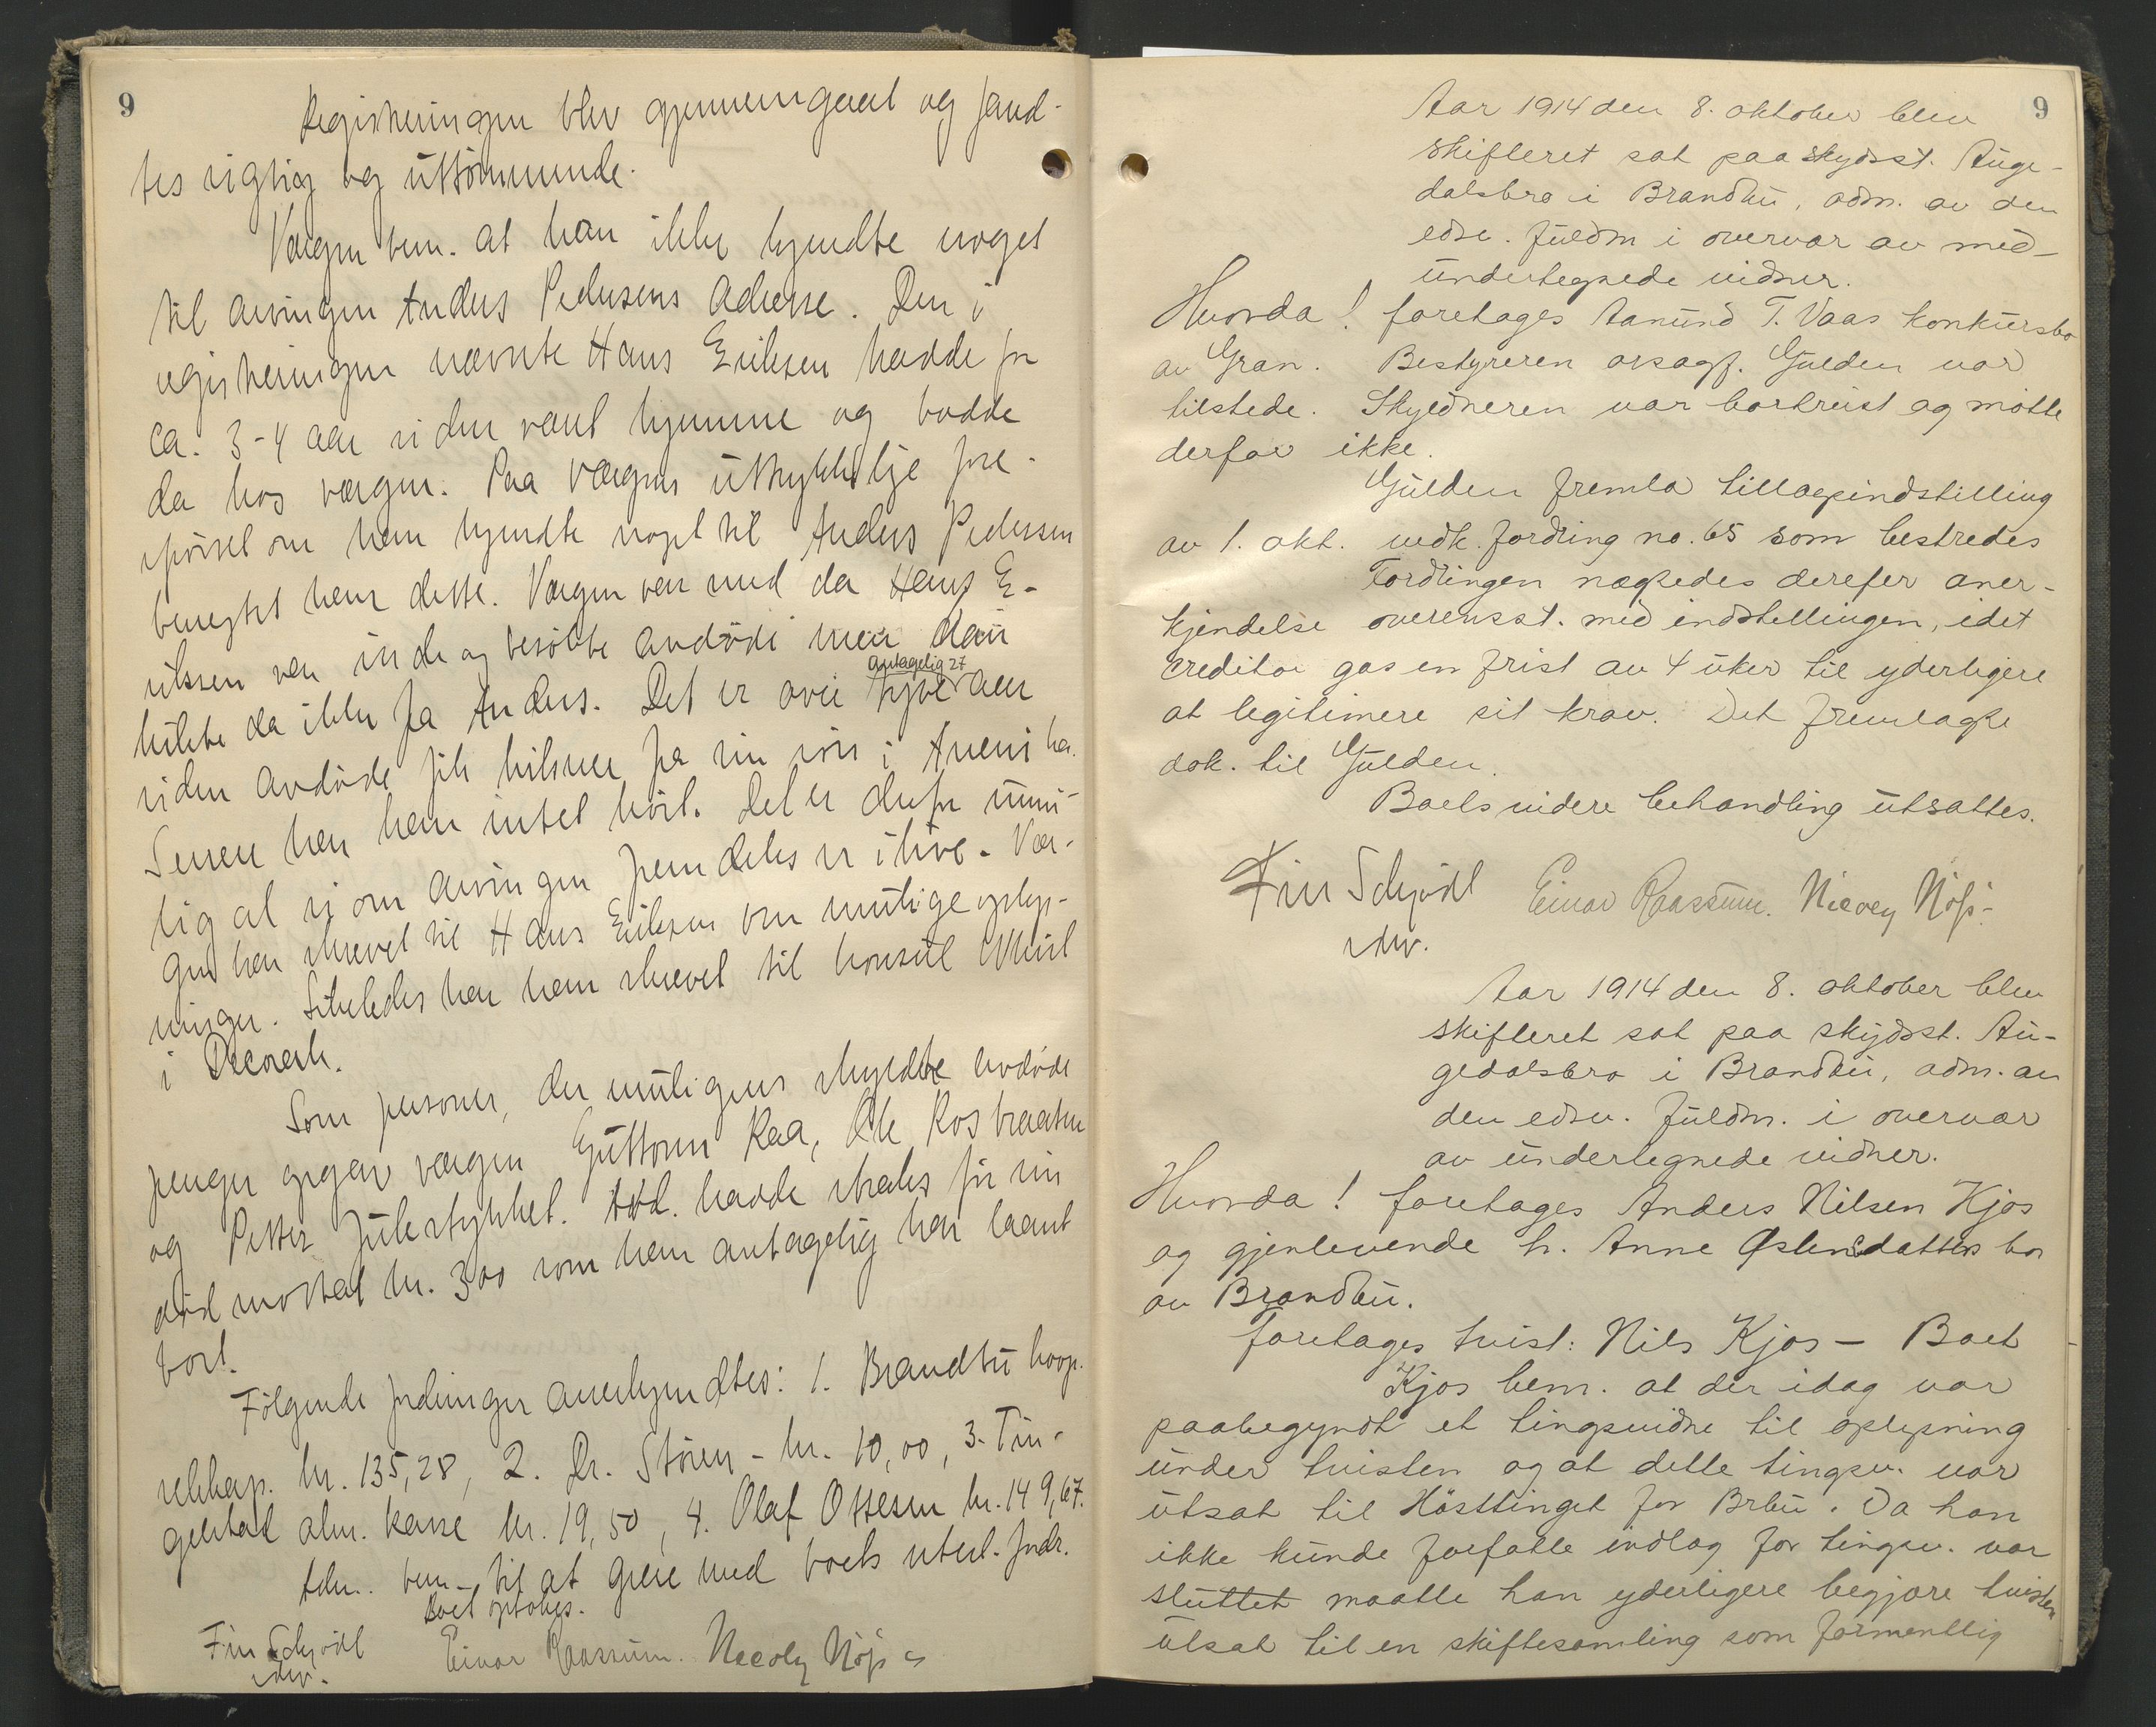 9
Registreringen blev gjennemgaaet og fand-
tes rigtig og uttömmende.
Værgen bem. at han ikke kjendte noget
til arvingen Anders Pedersens adresse. Den i
registreringen nævnte Hans Eriksen hadde for
ca. 3-4 aar siden været hjemme og bodde
da hos værgen. Paa værgens uttrykkelige fore-
spörsel om han kjendte noget til Anders Pedersen
benegtet han dette. Værgen var med da Hans E-
riksen var inde og besökte avdöde men han
hilste da ikke fra Anders. Det er over
antagelig 27
aar
siden avdöde fik hilsner fra sin sön i Amerika.
Senere har han intet hört. Det er derfor umu-
lig at si om arvingen fremdeles er ilive. Vær-
gen har skrevet til Hans Eriksen om mulige oplys-
ninger. Likeledes har han skrevet til konsul
i Decorah.
Som personer, der muligens skyldte avdöde
penger opgav værgen Guttorm Raa, Ole Rosbraaten
og Petter Julerstykket. Avd. hadde straks för sin
död mottat kr. 300 som han antagelig har laant
bort.
Fölgende fordringer anerkjendtes: 1. Brandbu koop.
selskap. kr. 135,28, 2. Dr. Stören - kr. 10,00, 3. Tin-
gelstad alm. kasse kr. 19,50, 4. Olaf Ottesen kr. 149,67.
Adm. bem. til at greie med boets utest. fordr.
Boet optoges.
Fin Schjödt
Einar Raassum. Nicolay
9
Aar 1914 den 8. oktober blev
skifteret sat paa skydsst. Auge-
dalsbro i Brandbu, adm. av den
edsv. fuldm i overvær av med-
undertegnede vidner.
Hvorda! foretages Aanund T. Vaas konkursbo
av Gran. Bestyreren orsagf. Gulden var
tilstede. Skyldneren var bortreist og mötte
derfor ikke.
Gulden fremla tillægsindstilling
av 1. okt. vedk. fordring no. 65 som bestredes
Fordringen negtedes derefter aner-
kjendelse overensst. med indstillingen, idet
creditor gas en frist av 4 uker til yderligere
at legitimere sit krav. Det fremlagte
dok. til Gulden.
Boets videre behandling utsattes.
Fin Schjödt Einar Raassum. Nicolay
Aar 1914 den 8. oktober blev
skifteret sat paa skydsst. Au-
gedalsbro i Brandbu, adm. av
den edsv. fuldm. i overvær
av undertegnede vidner.
Hvorda! foretages Anders Nilsen Kjos
og gjenlevende h. Anne Østensdatters bo
av Brandbu.
foretages tvist: Nils Kjos – Boet
Kjos bem. at der idag var
paabegyndt et tingsvidne til oplysning
under tvisten og at dette tingsv. var
utsat til Hösttinget for Brbu. Da han
ikke kunde forfatte indlæg för tingsv. var
sluttet maatte han yderligere begjære tvisten
utsat til en skiftesamling som formentlig